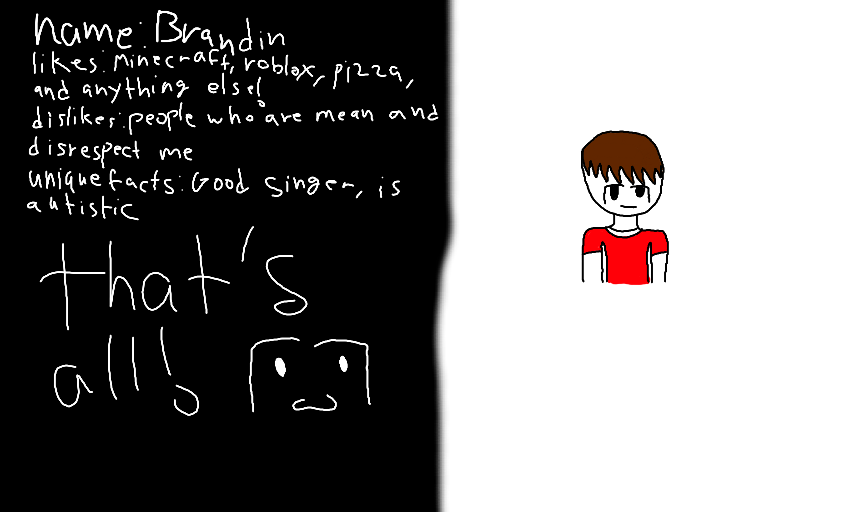 name: Brandin
likes: Minecraft, roblox, pizza,
and anything else!
dislikes: people who are mean and
disrespect me
unique facts: Good singer, is
autistic
that's
all!